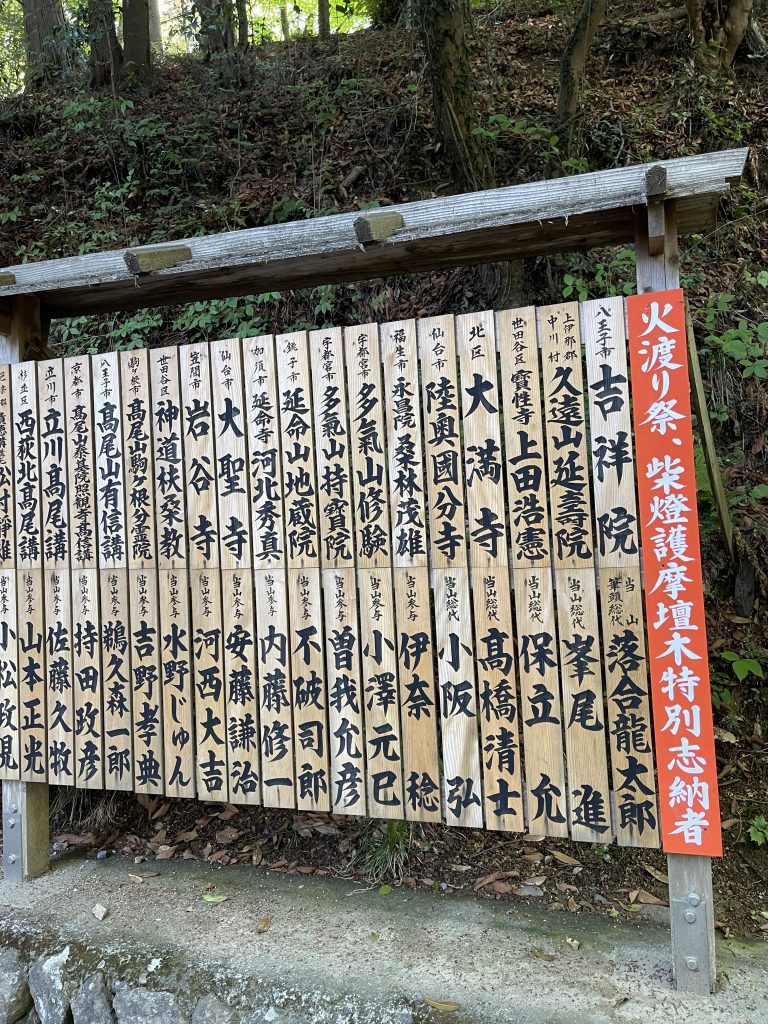 火渡り祭、柴燈護摩壇木特別志納者
八王子市 吉祥院
上伊那郡中川村 久遠山延壽院
世田谷区 寳性寺 上田浩憲
北区 大満寺
仙台市 陸奥國分寺
福生市 永昌院 桑林茂雄
宇都宮市 多氣山修験
宇都宮市 多氣山持寳院
銚子市 延命山地蔵院
加須市 延命寺 河北秀真
仙台市 大聖寺
笠間市 岩谷寺
世田谷区 神道扶桑教
駒ヶ根市 髙尾山駒ヶ根分霊院
八王子市 髙尾山有信講
京都市 髙尾山泰長院照観寺髙信講
立川市 立川髙尾講
杉並区 西荻北髙尾講
当山筆頭総代 落合龍太郎
当山総代 峯尾進
当山総代 保立允
当山総代 髙橋清士
当山総代 小阪弘
当山参与 伊奈稔
当山参与 小澤元巳
当山参与 曽我允彦
当山参与 不破司郎
当山参与 内藤修一
当山参与 安藤謙治
当山参与 河西大吉
当山参与 水野じゅん
当山参与 吉野孝典
当山参与 鵜久森一郎
当山参与 持田政彦
当山参与 佐藤久牧
当山参与 山本正光
当山参与 小松政見